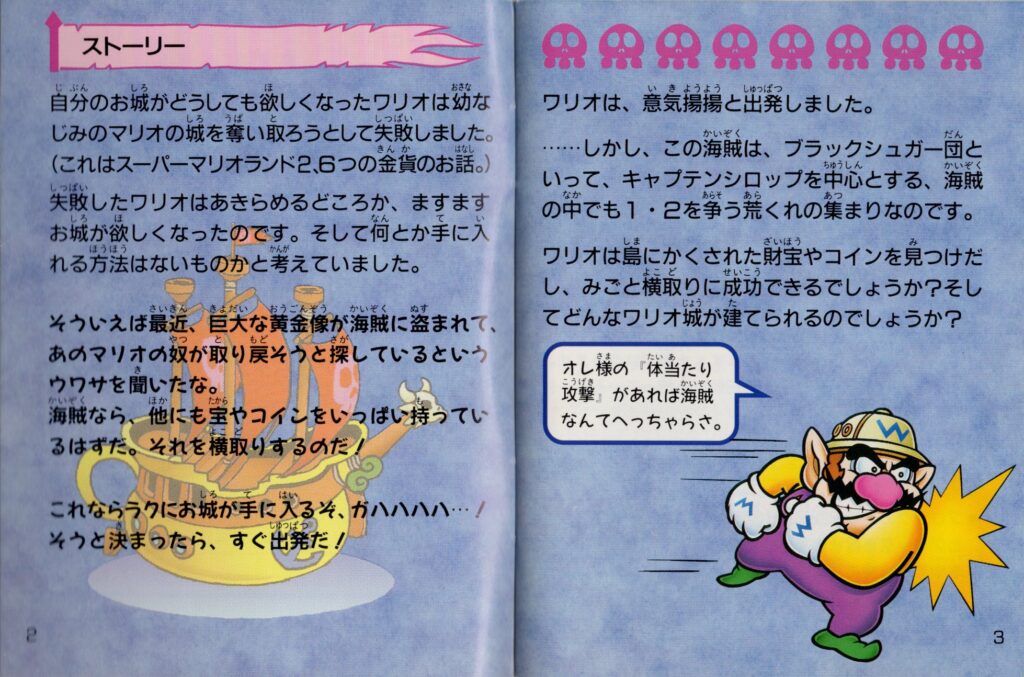 ストーリー
自分のお城がどうしても欲しくなったワリオは幼な
じみのマリオの城を奪い取ろうとして失敗しました。
(これはスーパーマリオランド2、6つの金貨のお話。)
失敗したワリオはあきらめるどころか、ますます
お城が欲しくなったのです。そして何とか手に入
れる方法はないものかと考えていました。
そういえば最近、巨大な黄金像が海賊に盗まれて、
あのマリオの奴が取り戻そうと探しているという
ウワサを聞いたな。
海賊なら、他にも宝やコインをいっぱい持ってい
るはずだ。それを横取りするのだ!
これならラクにお城が手に入るぞ、ガハハハハ…!
そうと決まったら、すぐ出発だ!
2
ワリオは、意気揚揚と出発しました。
……しかし、この海賊は、ブラックシュガー団と
いって、キャプテンシロップを中心とする、海賊
の中でも1・2を争う荒くれの集まりなのです。
ワリオは島にかくされた財宝やコインを見つけだ
し、みごと横取りに成功できるでしょうか?そし
てどんなワリオ城が建てられるのでしょうか?
オレ様の『体当たり
攻撃』があれば海賊
なんてへっちゃらさ。
W
3